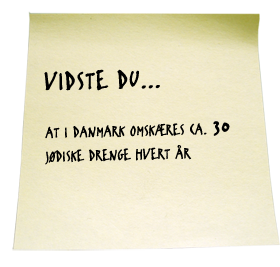 VIDSTE DU...
AT I DANMARK OMSKÆRES CA. 30
JØDISKE DRENGE HVERT ÅR